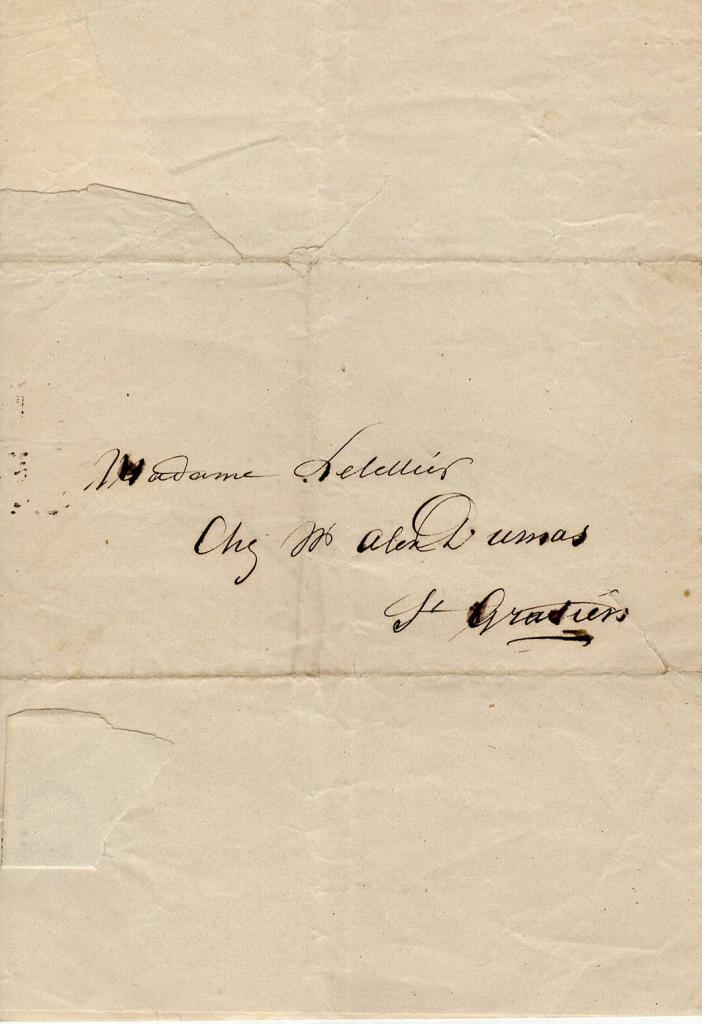 Madame Letellier
Chez Mr Alex Dumas
St Gratien